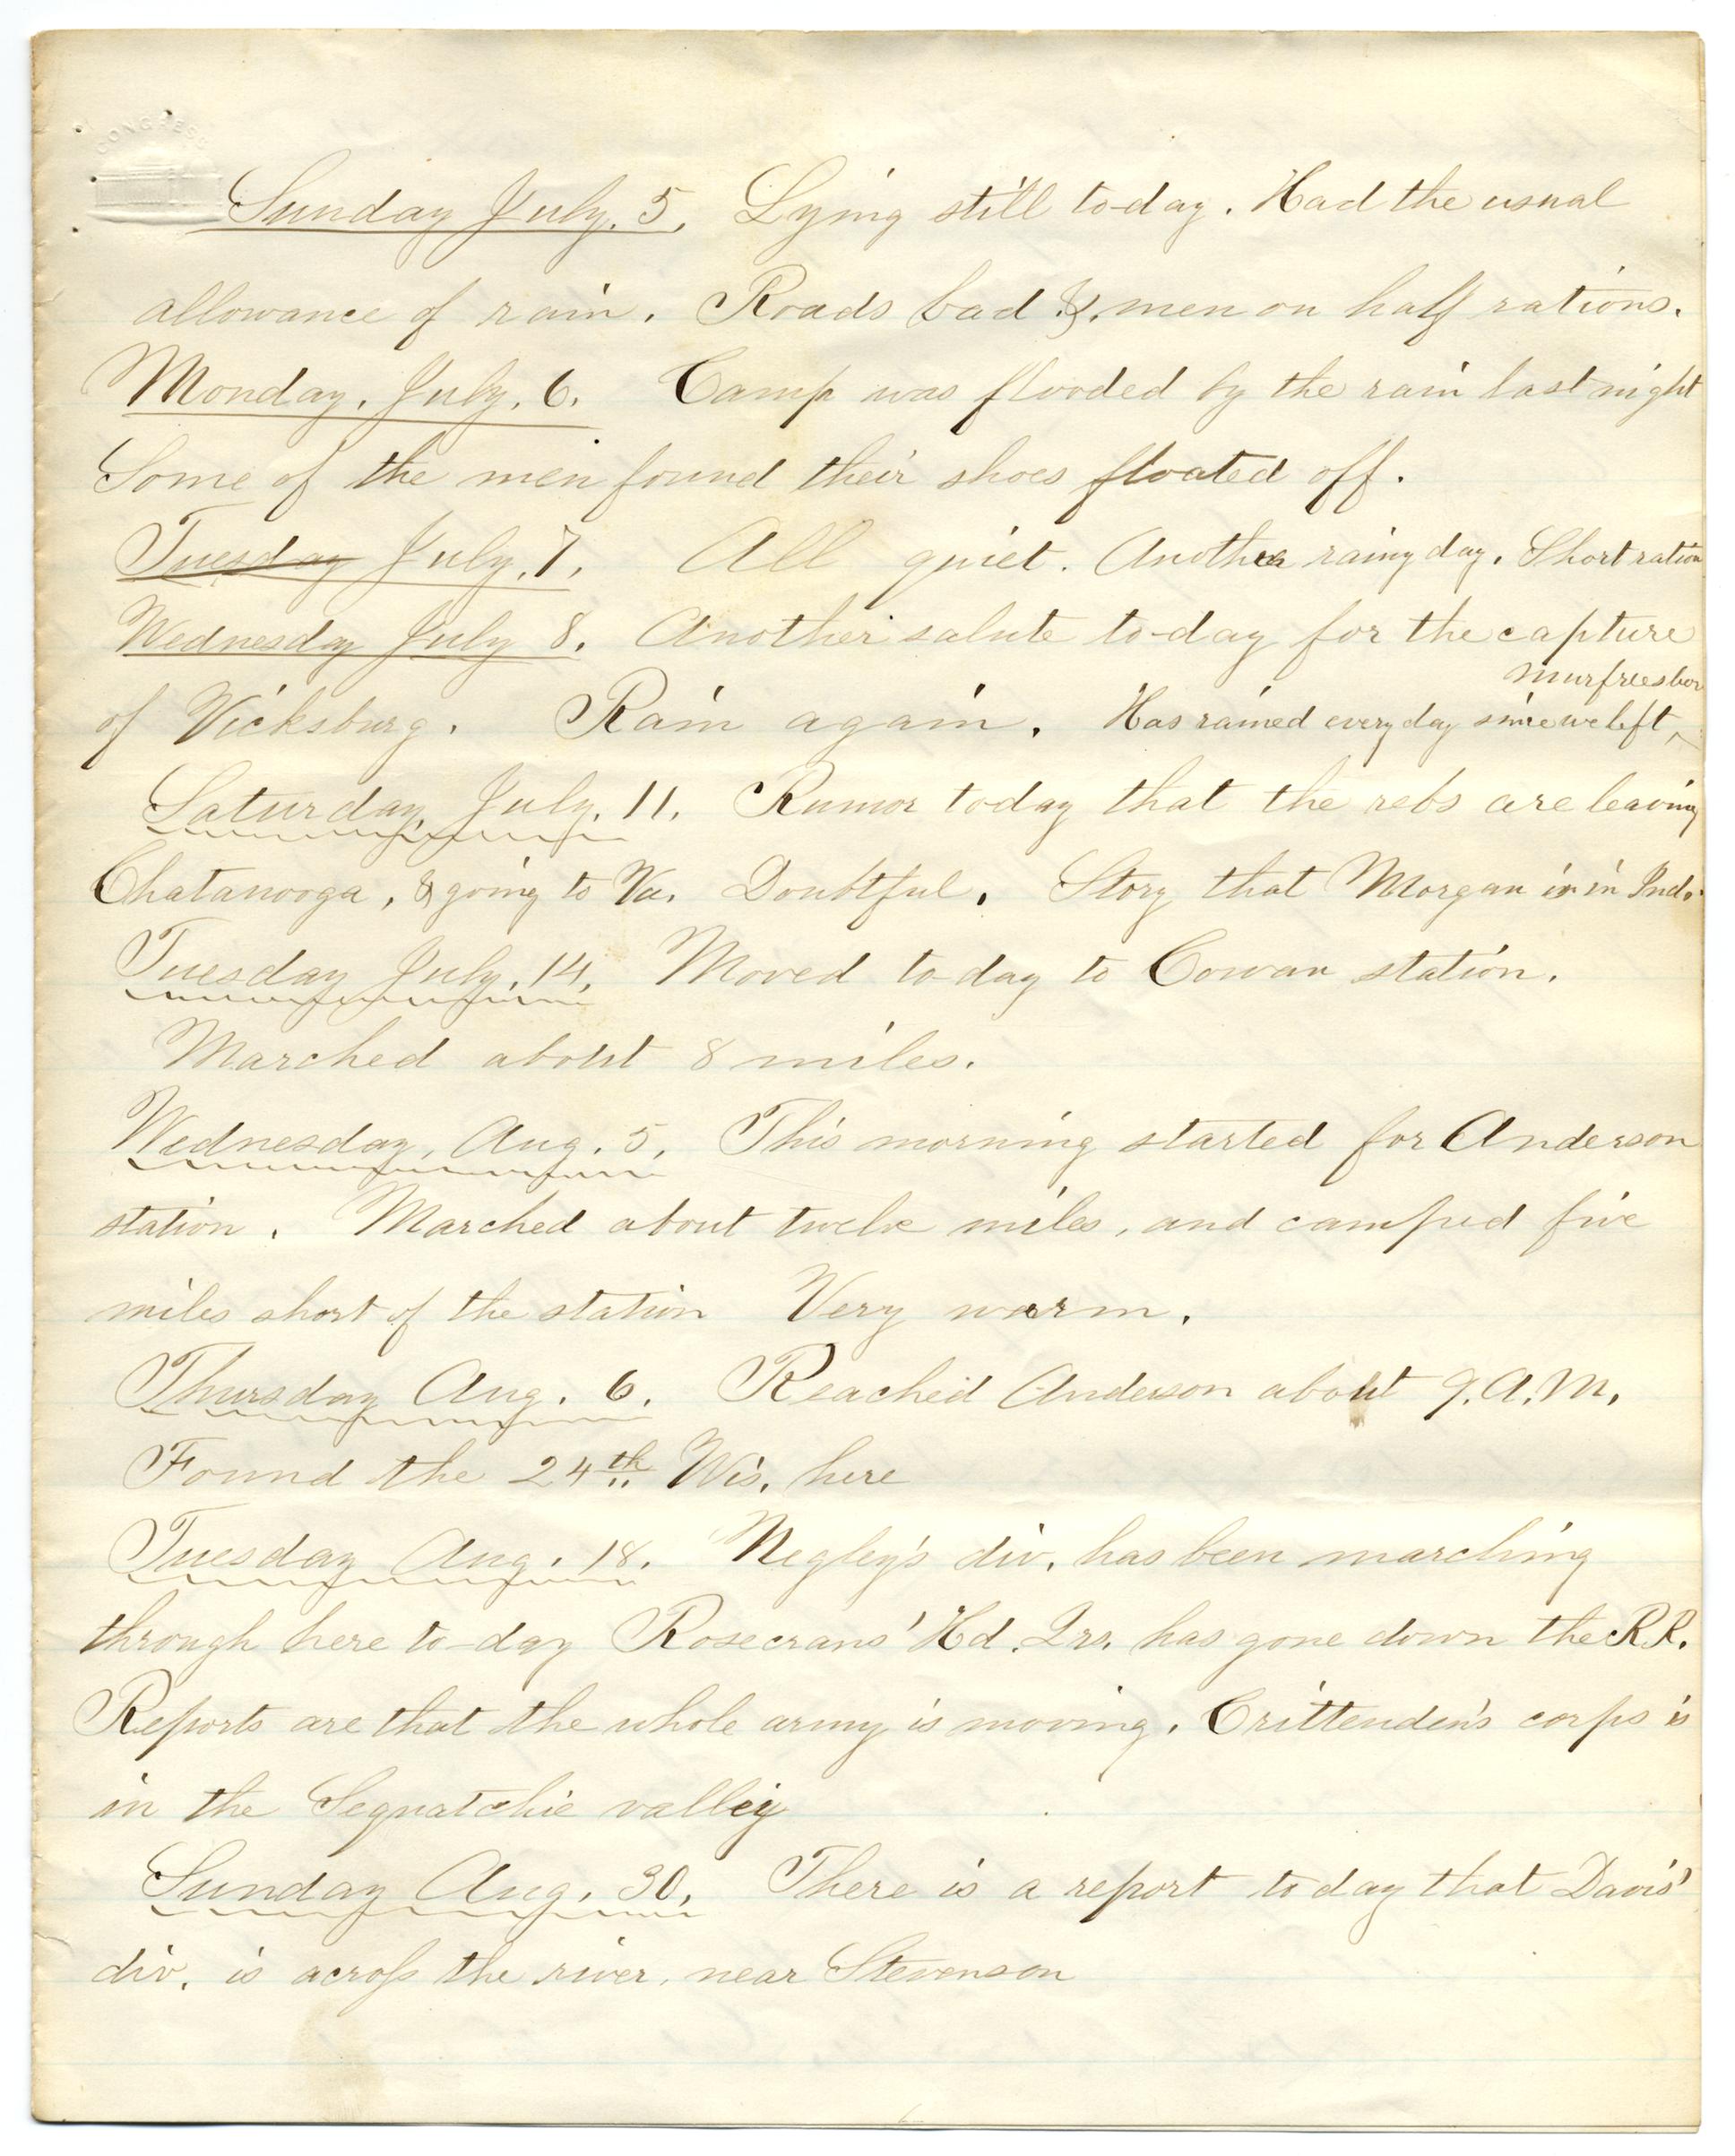 CONGRESS
Sunday July. 5. Lying still to-day. Had the usual
allowance of rain. Roads bad &. men on half rations.
Monday. July. 6. Camp was flooded by the rain last night
Some of the men found their shoes floated off.
Tuesday July. 7. All quiet. Another rainy day. Short ration
Wednesday July 8. Another salute to-day for the capture
Murfreesbor
of Vicksburg. Rain again. Has rained every day since we left ^
Saturday, July. 11. Rumor today that the rebs are leaving
Chatanooga, & going to Va. Doubtful. Story that Morgan is in Ind.
Tuesday July. 14. Moved to day to Cowan station.
Marched about 8 miles.
Wednesday, Aug. 5. This morning started for Anderson
station. Marched about twelve miles, and camped five
miles short of the station Very warm.
Thursday Aug. 6. Reached Anderson about 9. A. M.
Found the 24th Wis. here
Tuesday Aug. 18. Negley's div. has been marching
through here to-day Rosecrans' Hd. Qrs. has gone down the R.R.
Reports are that the whole army is moving. Crittenden's corps is
in the Sequatchie valley
Sunday Aug. 30. There is a report today that Davis'
div. is across the river, near Stevenson